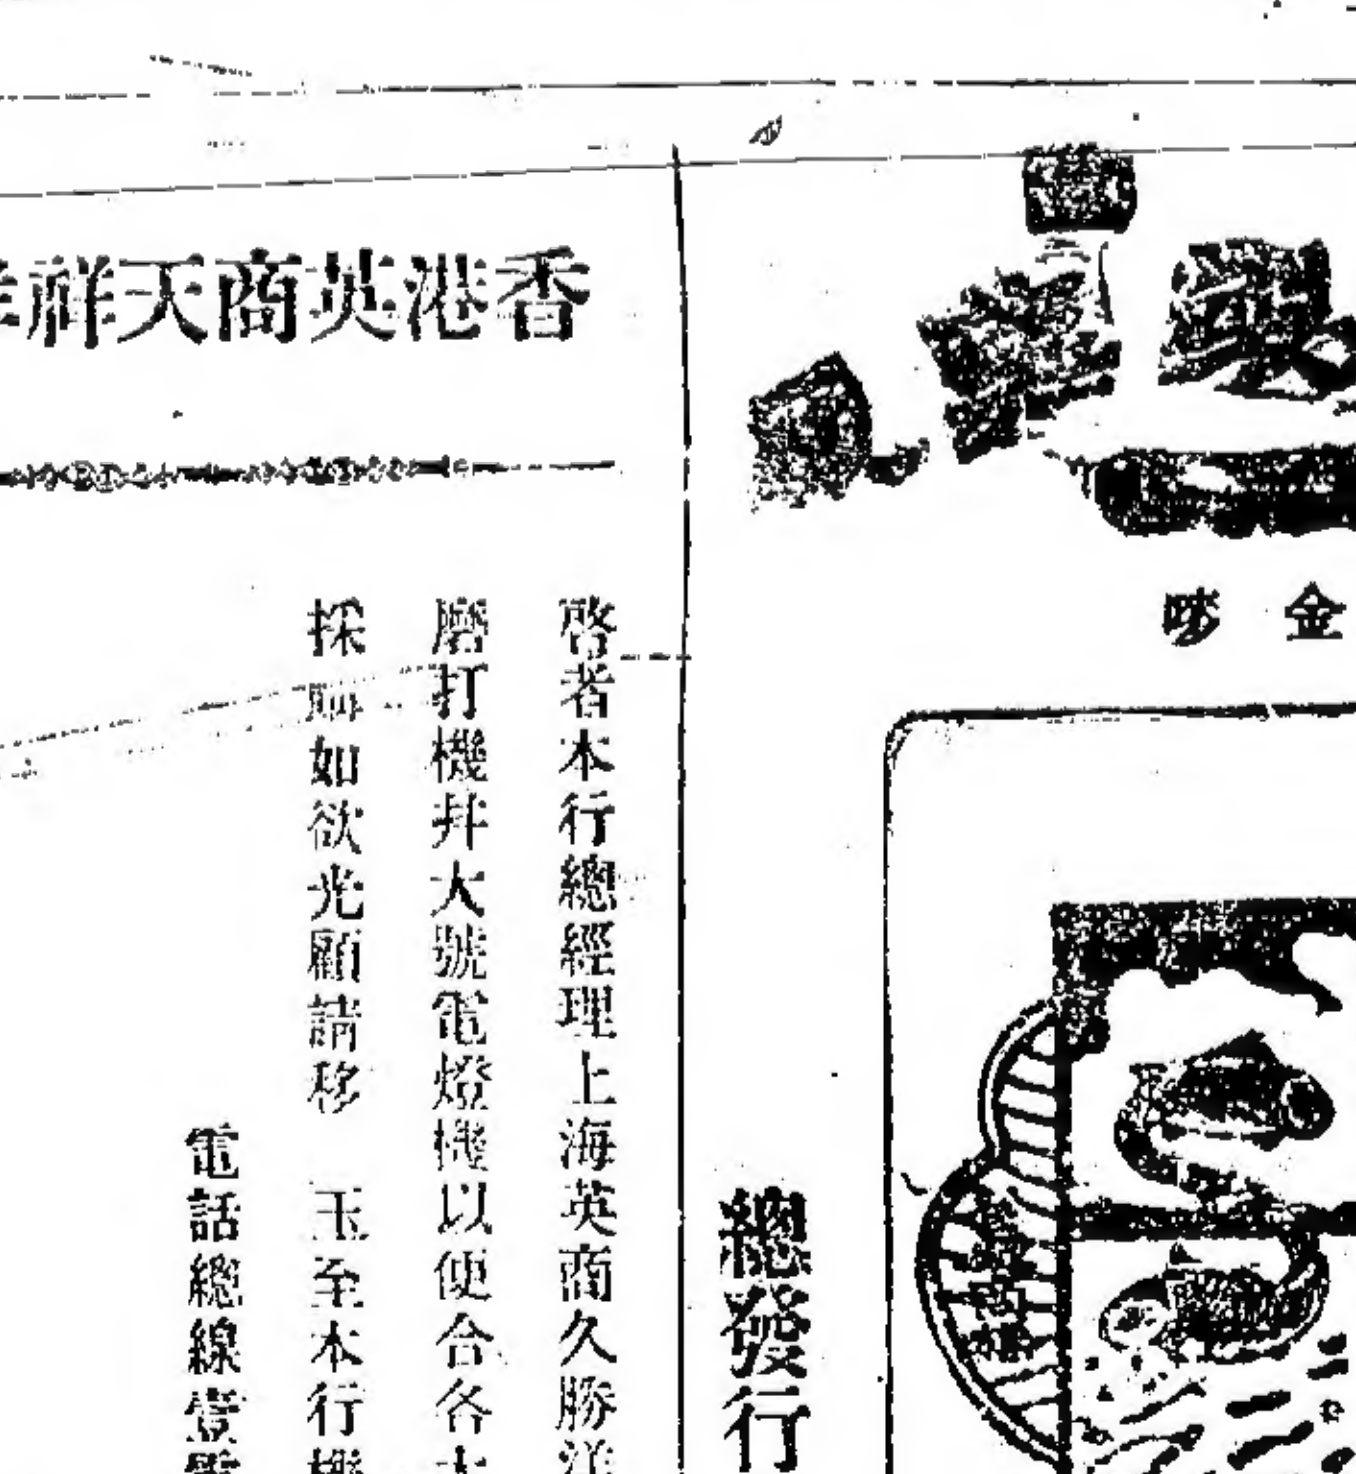 香港英商天祥
啓者本行總經理上海英商久勝洋
磨打機幷大號電燈機以便合各大
採購如欲光顧請移 玉至本行機
電話總線壹
金嘜
總發行